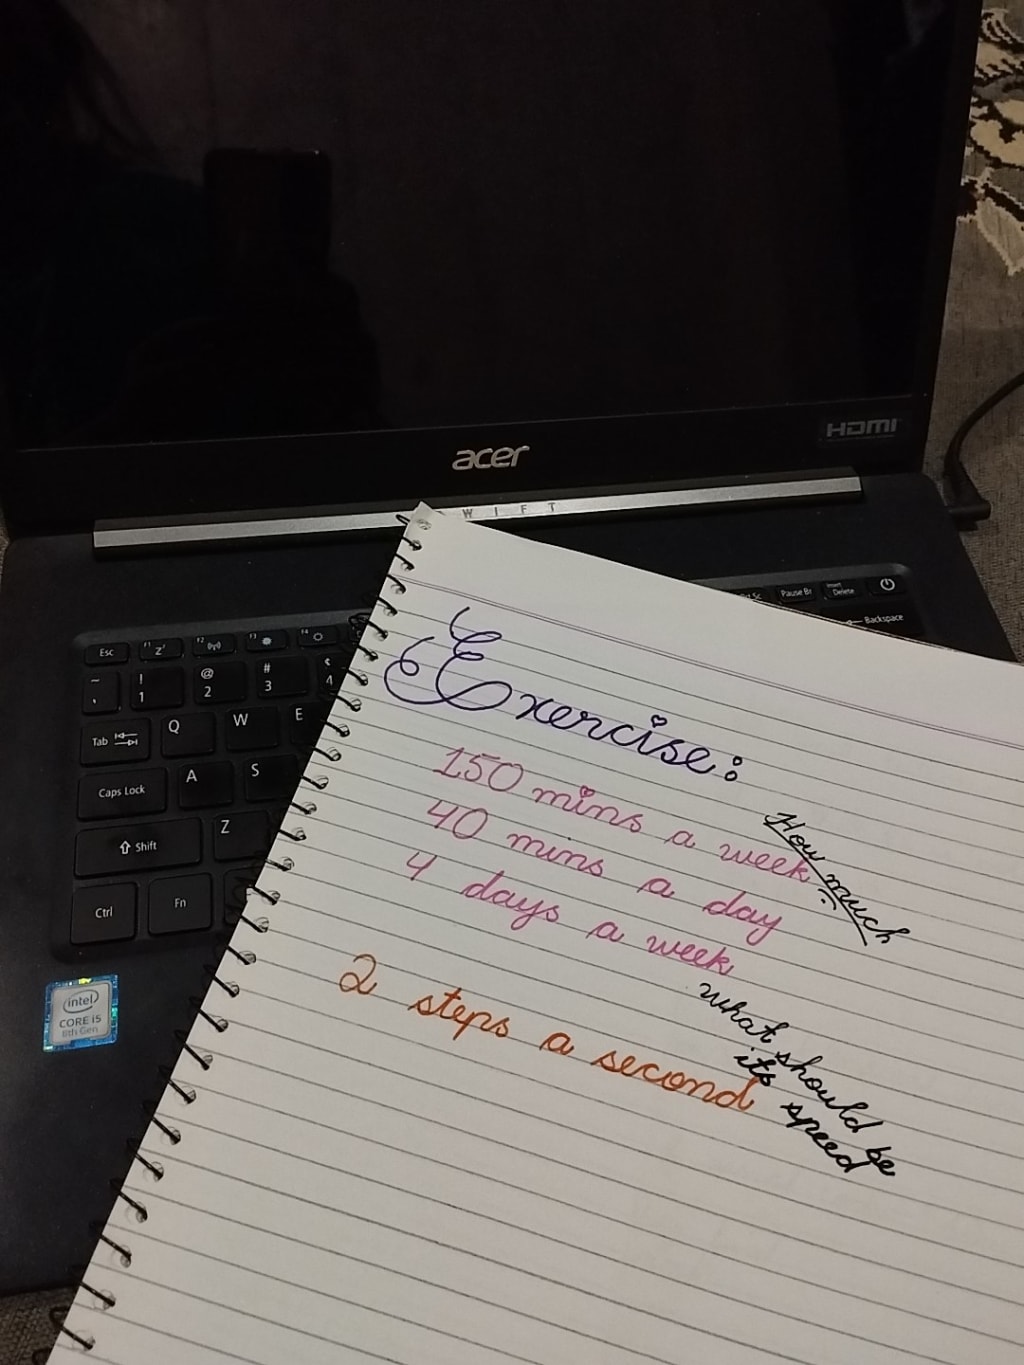 HDMI
acer
W I F T
Pause Br
Insert
Delete
Backspace
Esc
F1
F2
F3
F4
~
!
1
@
2
#
3
4
Tab
Q
W
E
Caps Lock
A
S
Shift
Z
Ctrl
Fn
intel
CORE i5
8th Gen
Exercise:
150 mins a week
40 mins a day
4 days a week
How much
2 steps a second
what should be
its speed